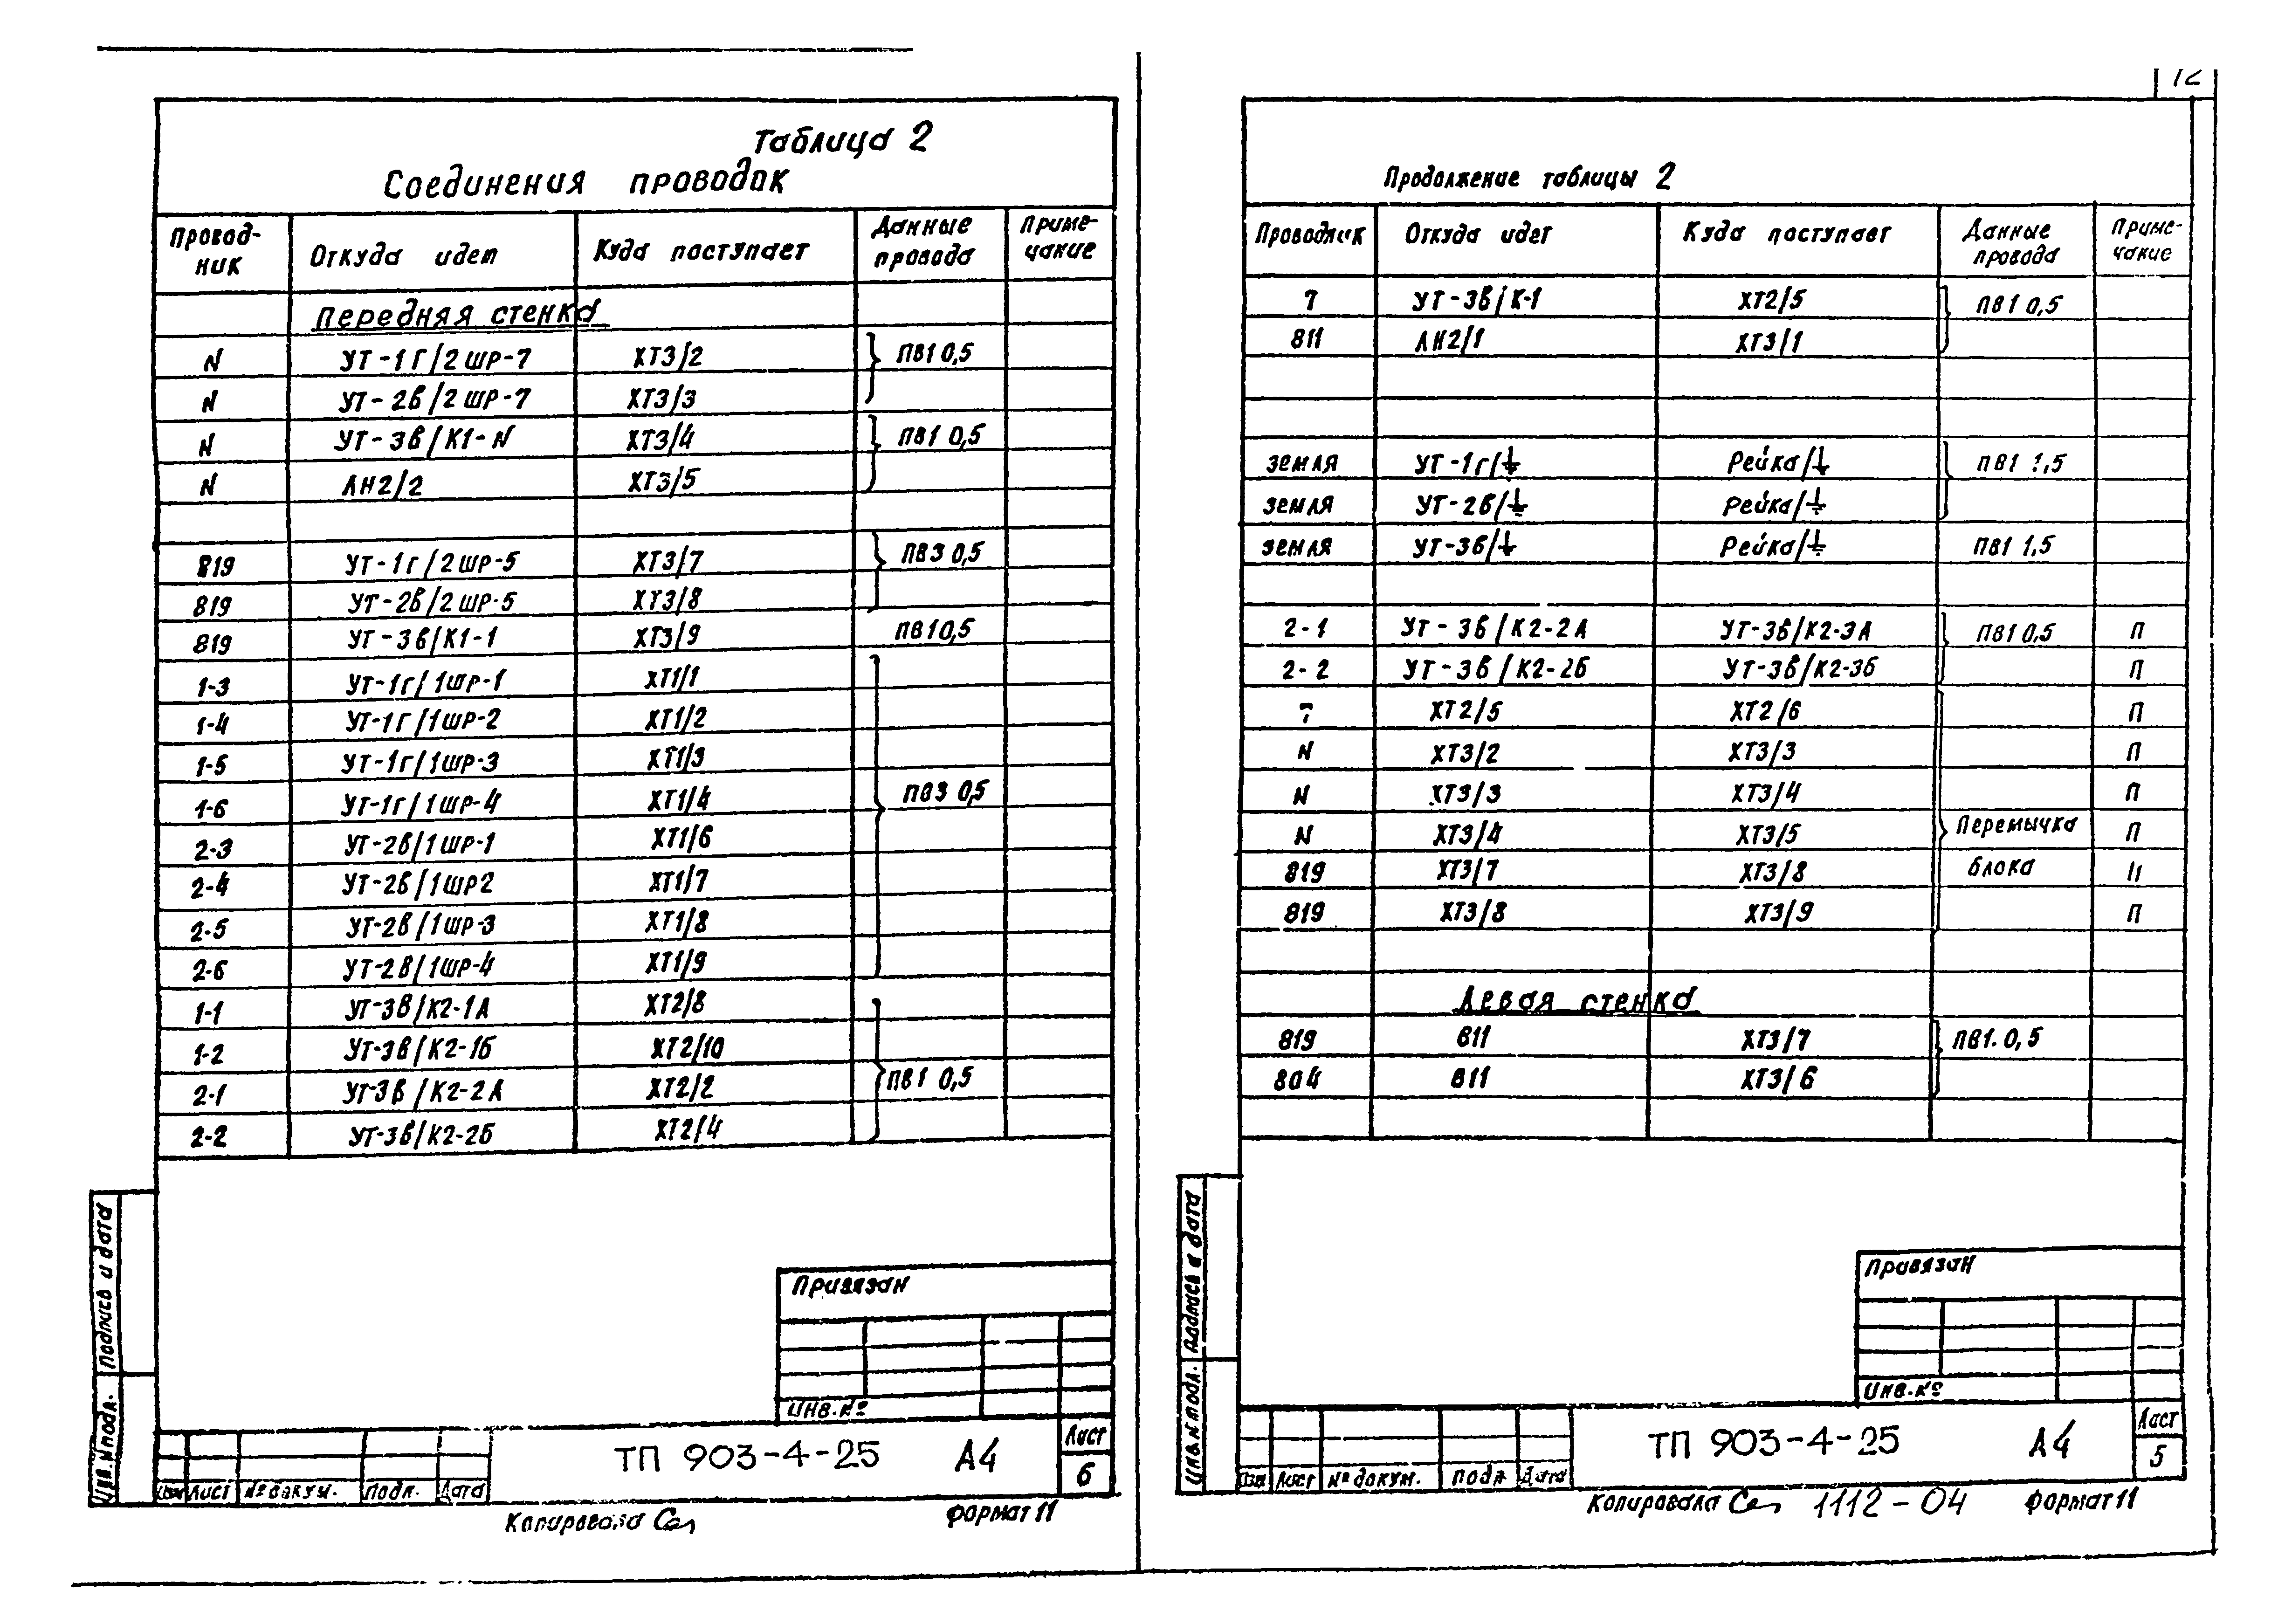 12
Таблица 2
Соединения проводок
Провод-
ник
Откуда идет
Куда поступает
Данные
провода
Приме-
чание
Передняя стенка
N УТ-1Г/2ШР-7 ХТ3/2 ПВ1 0,5
N УТ-2В/2ШР-7 ХТ3/3
N УТ-3В/К1-N ХТ3/4 ПВ1 0,5
N ЛН2/2 ХТ3/5
819 УТ-1Г/2ШР-5 ХТ3/7 ПВ3 0,5
819 УТ-2В/2ШР-5 ХТ3/8
819 УТ-3В/К1-1 ХТ3/9 ПВ1 0,5
1-3 УТ-1Г/1ШР-1 ХТ1/1
1-4 УТ-1Г/1ШР-2 ХТ1/2
1-5 УТ-1Г/1ШР-3 ХТ1/3
1-6 УТ-1Г/1ШР-4 ХТ1/4 ПВ3 0,5
2-3 УТ-2В/1ШР-1 ХТ1/6
2-4 УТ-2В/1ШР2 ХТ1/7
2-5 УТ-2В/1ШР-3 ХТ1/8
2-6 УТ-2В/1ШР-4 ХТ1/9
1-1 УТ-3В/К2-1А ХТ2/8
1-2 УТ-3В/К2-1Б ХТ2/10
2-1 УТ-3В/К2-2А ХТ2/2 ПВ1 0,5
2-2 УТ-3В/К2-2Б ХТ2/4
Привязан
Инв.№
ТП 903-4-25 А4
Лист
6
Изм Лист № докум. Подп. Дата
Инв.№ подл. Подпись и дата
Копировала Сел
Формат 11
Продолжение таблицы 2
Проводник
Откуда идет
Куда поступает
Данные
провода
Приме-
чание
7 УТ-3В/К-1 ХТ2/5 ПВ1 0,5
811 ЛН2/1 ХТ3/1
земля УТ-1Г/⏚ Рейка/⏚ ПВ1 1,5
земля УТ-2В/⏚ Рейка/⏚
земля УТ-3В/⏚ Рейка/⏚ ПВ1 1,5
2-1 УТ-3В/К2-2А УТ-3В/К2-3А ПВ1 0,5 П
2-2 УТ-3В/К2-2Б УТ-3В/К2-3Б П
7 ХТ2/5 ХТ2/6 П
N ХТ3/2 ХТ3/3 П
N ХТ3/3 ХТ3/4 П
N ХТ3/4 ХТ3/5 Перемычка П
819 ХТ3/7 ХТ3/8 блока П
819 ХТ3/8 ХТ3/9 П
Левая стенка
819 В11 ХТ3/7 ПВ1. 0,5
804 В11 ХТ3/6
Привязан
Инв.№
ТП 903-4-25 А4
Лист
5
Изм Лист № докум. Подп Дата
Инв.№ подл. Подпись и дата
Копировала Сел 1112-04 Формат 11